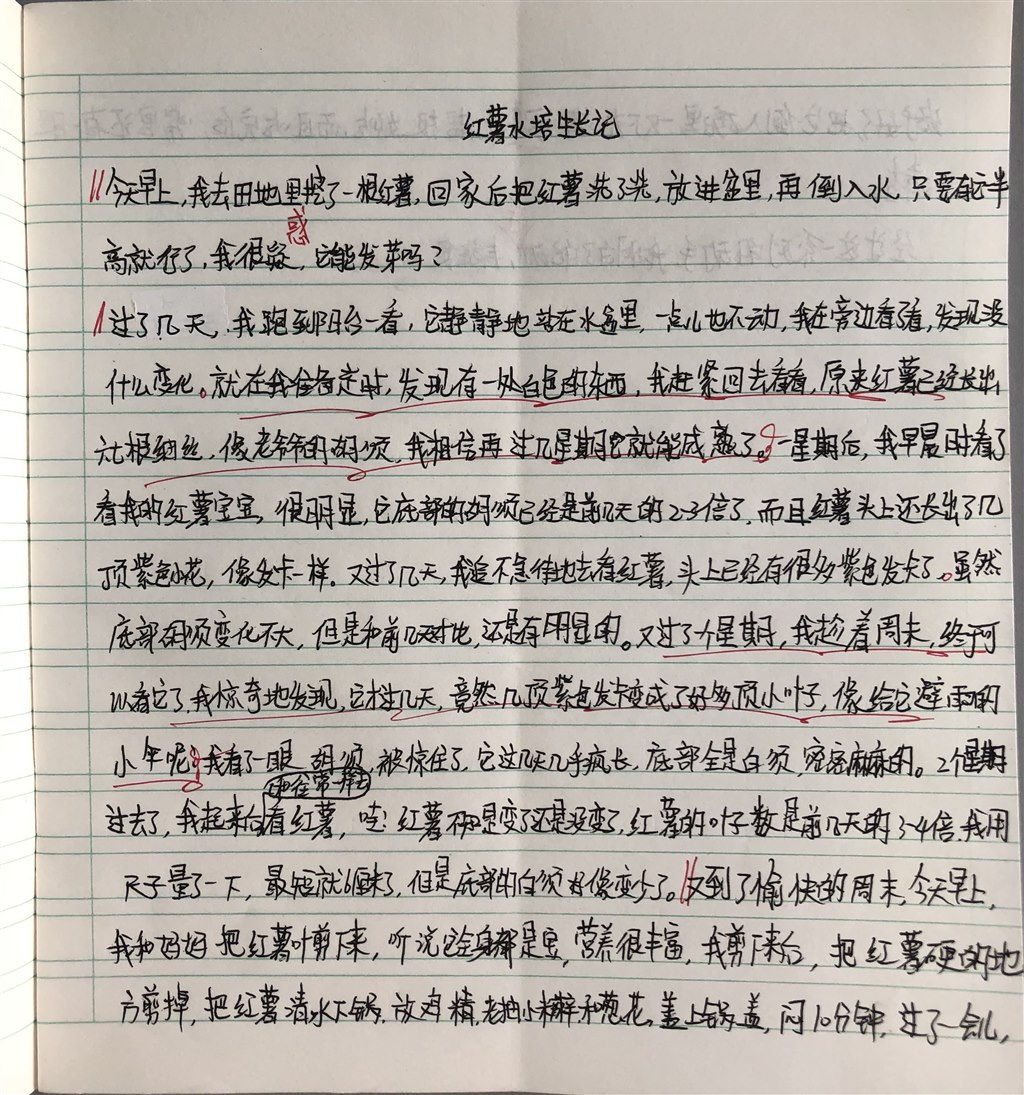 红薯水培生长记
今天早上,我去田地里挖了一根红薯,回家后把红薯洗了洗,放进盆里,再倒入水,只要有它半
惑
高就行了,我很疑,它能发芽吗?
过了几天,我跑到阳台一看,它静静地站在水盆里,一点儿也不动,我在旁边看了看,发现没
什么变化。就在我准备走时,发现有一处白色的东西,我赶紧回去看看,原来红薯已经长出
六根细丝,像老爷爷的胡须,我相信再过几星期它就能成熟了。一星期后,我早晨时看了
看我的红薯宝宝,很明显,它底部的胡须已经是前几天的2-3倍了,而且红薯头上还长出了几
顶紫色小花,像发卡一样。又过了几天,我迫不急待地去看红薯,头上已经有很多紫色发卡了。虽然
底部胡须变化不大,但是和前几天对比,还是有明显的。又过了一个星期,我趁着周末,终于可
以看它了,我惊奇地发现,它才过几天,竟然几顶紫色发卡变成了好多顶小叶子,像给它避雨的
小伞呢,我看了一眼胡须,被惊住了,它这几天几乎疯长,底部全是白须,密密麻麻的。2个星期
和往常一样去
过去了,我起来看红薯,哇!红薯不知是变了还是没变了,红薯的叶子数是前几天的3-4倍,我用
尺子量了一下,最短就6厘米了,但是底部的白须好像变少了。又到了愉快的周末,今天早上,
我和妈妈把红薯叶剪下来,听说它全身都是宝,营养很丰富,我剪下来后,把红薯硬的地
方剪掉,把红薯清水下锅,放鸡精,老抽小辣和葱花,盖上锅盖,闷10分钟,过了一会儿,